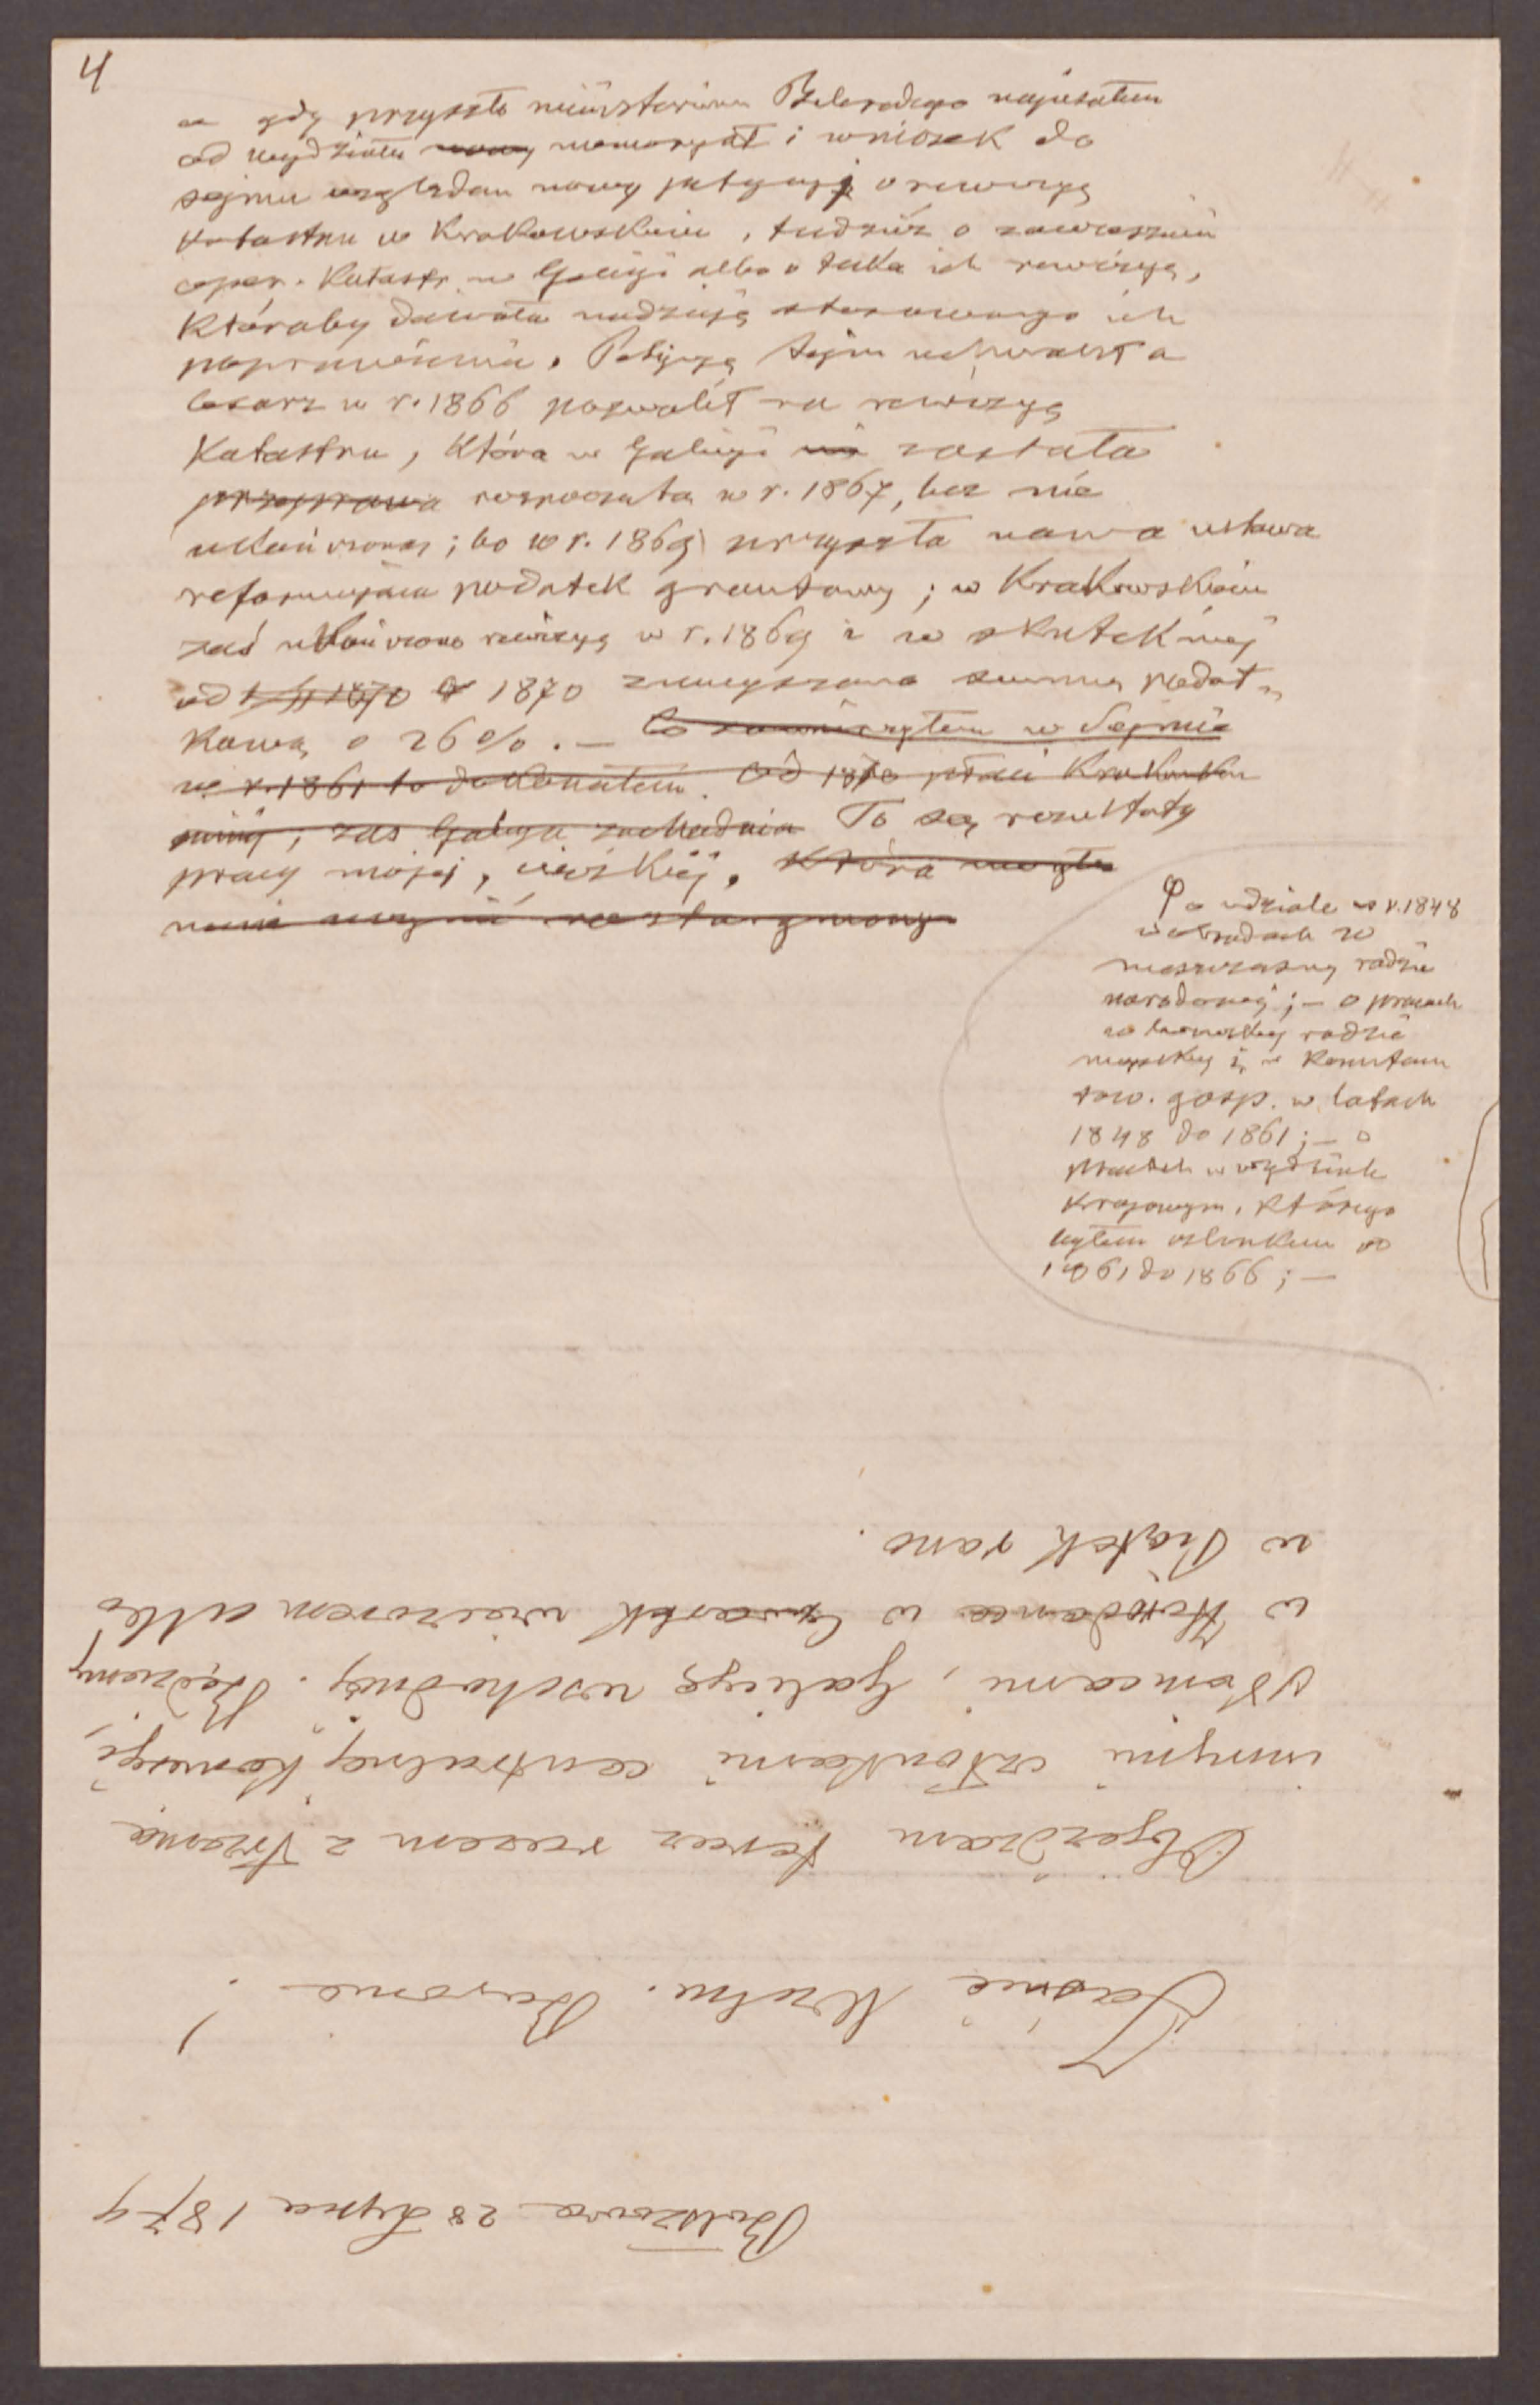 4
a gdy przyszło ministerium Belcredego napisałem
od wydziału nowy memoryał i wniosek do
sejmu względem nowej petycyi o rewizyą
katastru w Krakowskiem, tudzież o zawieszenie
oper. katastr. w Galicyi albo o taką ich rewizyą,
któraby dawała nadzieję stosownego ich
poprawienia. Petycyą sejm uchwalił a
Cesarz w r. 1866 pozwolił na rewizyą
katastru, która w Galicyi została
rozpoczęta w r. 1867, lecz nie
ukończoną; bo w r. 1869 przyszła nowa ustawa
reformująca podatek gruntowy; w Krakowskiem
zaś ukończono rewizyą w r. 1869 i w skutek niej
od 1870 zmniejszono summę podat-
kową o 26%. — Co zamierzyłem w Sejmie
w r. 1861 to dokonałem. Od 1870 płaci Krakowskie
mniej, zaś Galicya zachodnia To są rezultaty
pracy mojej, ciężkiej, która mogła
mnie
o udziale w r. 1848
w obradach w
radzie
narodowej; — o pracach
w lwowskiej radzie
miejskiej i w Komitecie
tow. gosp. w latach
1848 do 1861; — o
pracach w wydziale
krajowym, którego
byłem członkiem od
1861 do 1866; —
28 Lipca 1874
Jaśnie Wielm. Baronie!
Objeżdżam teraz razem z
innymi członkami centralnej Komisyi,
Niemcami, Galicyę wschodnią. Będziemy
w Horodence w Czwartek wieczorem albo
w Piątek rano.